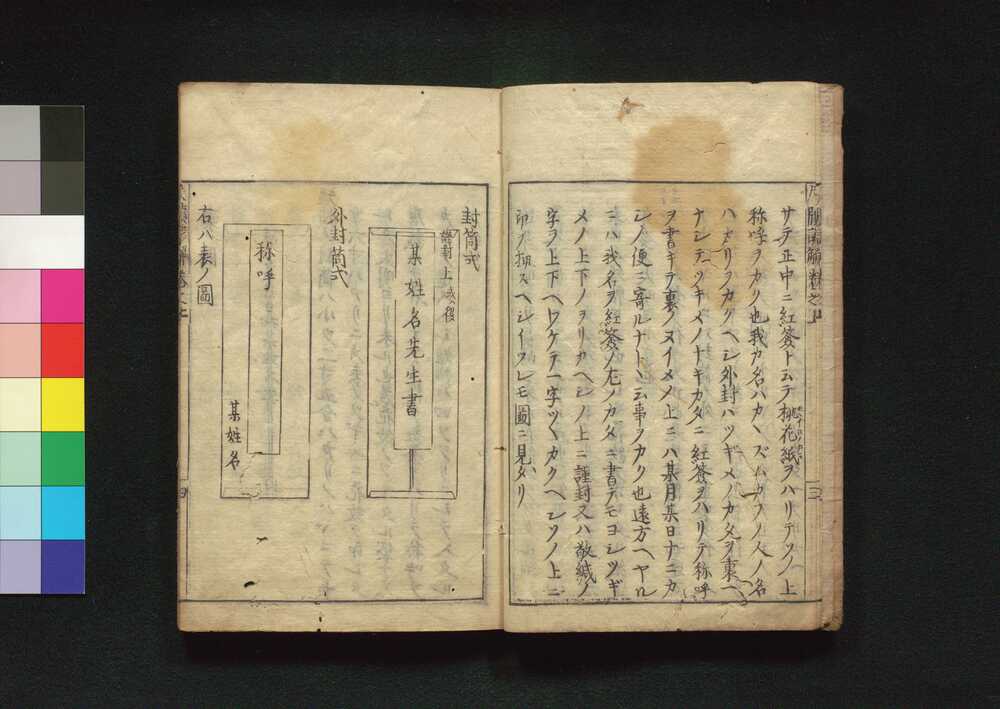 サテ正中ニ紅簽トムテ桃花紙ヲハリテソノ上
称呼ヲカク也我カ名ハカヽズムカフノ人ノ名
ハカリヲカクヘシ外封ハツギメノカタヲ裏ヘ
ナシテツキメノナキカタニ紅簽ヲハリテ称呼
ヲ書キテ裏ノヌイメノ上ニハ某月某日ナニカ
シノ便ニ寄ルナトヽ云事ヲカク也遠方ヘヤル
ニハ我名ヲ紅簽ノ左ノカタニ書テモヨシツギ
メノ上下ノヲリカヘシノ上ニ謹封又ハ敬緘ノ
字ヲ上下ヘワケテ一字ツヽカクヘシソノ上ニ
印ヲ押スヘシイツレモ圖ニ見タリ
三
封筒式
謹封上
某姓名先生書
外封筒式
称呼
某姓名
右ハ表ノ圖
四